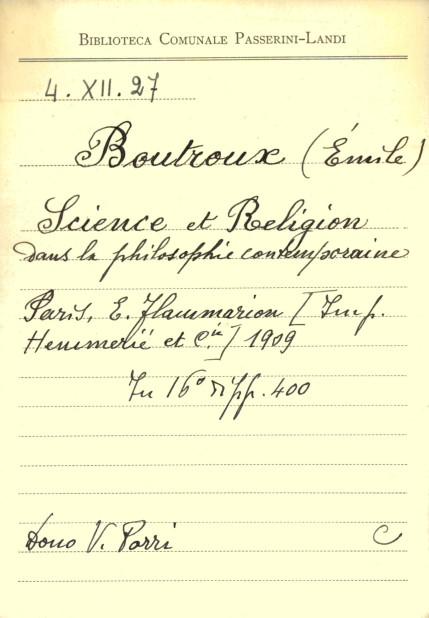 BIBLIOTECA COMUNALE PASSERINI-LANDI
4. XII. 27
Boutroux (Émile)
Science et Religion
dans la philosophie contemporaine
Paris, E. Flammarion [Imp.
Hemmerlé et C.ie] 1909
In 16° di pp. 400
Dono V. Porri
C